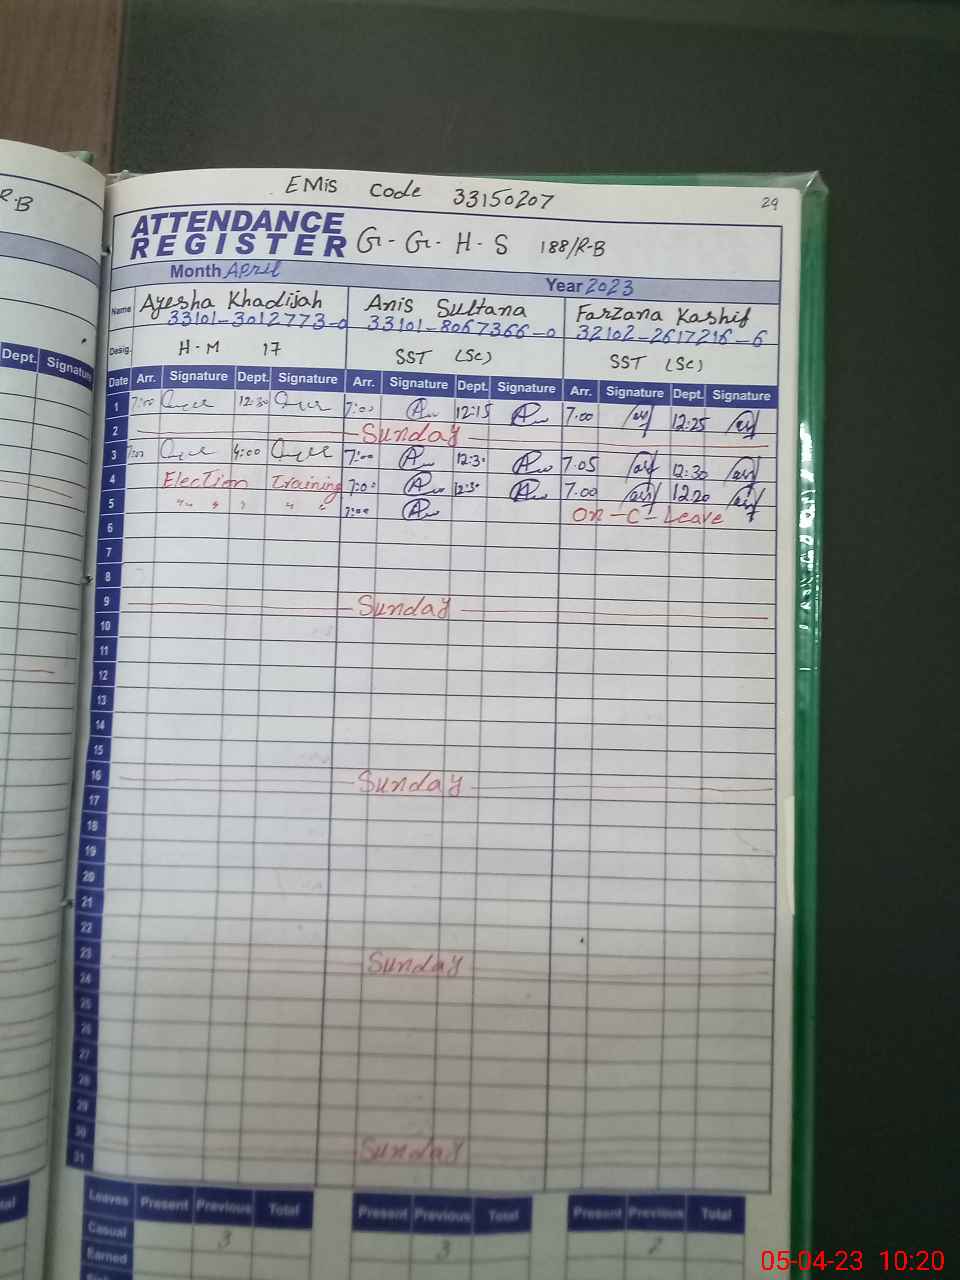 R.B
EMis Code 33150207
29
ATTENDANCE
REGISTER G-G-H-S 188/R-B
Month April Year 2023
Name Ayesha Khadijah Anis Sultana Farzana Kashif
33101-3012773-0 33101-8067366-0 32102-2617216-6
Desig. H-M 17 SST (Sc) SST (Sc)
Dept. Signature
Date Arr. Signature Dept. Signature Arr. Signature Dept. Signature Arr. Signature Dept. Signature
1 7:00 12:30 7:00 12:15 7.00 12:25
2 Sunday
3 7:00 4:00 7:00 12:30 7.05 12:30
4 Election Training 7:00 12:30 7.00 12.20
5 " " " " " 7:00 On-C-Leave
6
7
8
9 Sunday
10
11
12
13
14
15
16 Sunday
17
18
19
20
21
22
23 Sunday
24
25
26
27
28
29
30 Sunday
31
Leaves Present Previous Total Present Previous Total Present Previous Total
Casual 3 3 2
Earned
05-04-23 10:20